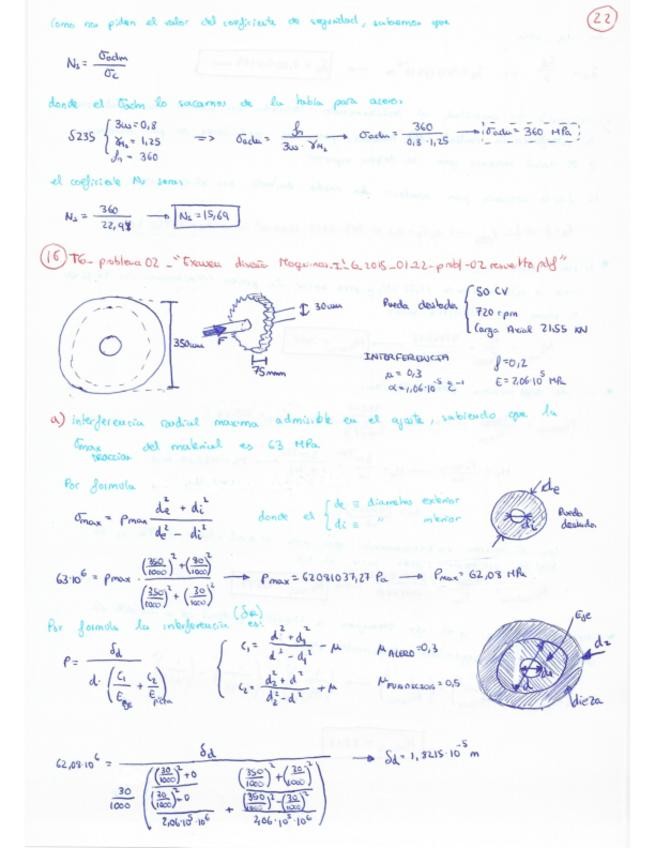 22
Como nos piden el valor del coeficiente de seguridad, sabemos que
Ns = σadm / σc
donde el σadm lo sacamos de la tabla para aceros
S235 { 3ω=0,8 γM2 = 1,25 fn = 360 => σadm = fn / 3ω·γM2 → σadm = 360 / 0,3·1,25 → σadm = 360 MPa
el coeficiente Ns será:
Ns = 360 / 22,94 → Ns = 15,69
16 TG_problema 02 - "Examen diseño Maquinas.I_G_2015_01_22-probl-02 resuelto.pdf"
350mm
F
75mm
30mm
Rueda dentada { 50 CV 720 rpm Carga Axial 2155 kN
INTERFERENCIA
μ = 0,3
α=1,06·10^-5 ºC^-1
f=0,2
E=2,06·10^5 MPa
a) interferencia radial maxima admisible en el ajuste, sabiendo que la
σmax traccion del material es 63 MPa
Por formula
σmax = Pmax · (de² + di²) / (de² - di²)
donde el { de ≡ diametro exterior di ≡ " interior
de
di
Rueda dentada
63·10^6 = Pmax · ((350/1000)² + (30/1000)²) / ((350/1000)² + (30/1000)²) → Pmax = 62081037,27 Pa → Pmax = 62,08 MPa
Por formula la interferencia (δd) es:
P = δd / d·(C1/Eeje + C2/Epieza)
{ C1 = (d² + d1²) / (d² - d1²) - μ C2 = (d2² + d²) / (d2² - d²) + μ
μ ACERO = 0,3
μ FUNDICION = 0,5
Eje
d2
d1
d
pieza
62,08·10^6 = δd / 30/1000 · (((30/1000)² + 0) / ((30/1000)² - 0) / 2,06·10^5·10^6 + ((350/1000)² + (30/1000)²) / ((350/1000)² - (30/1000)²) / 2,06·10^5·10^6) → δd = 1,8215·10^-5 m